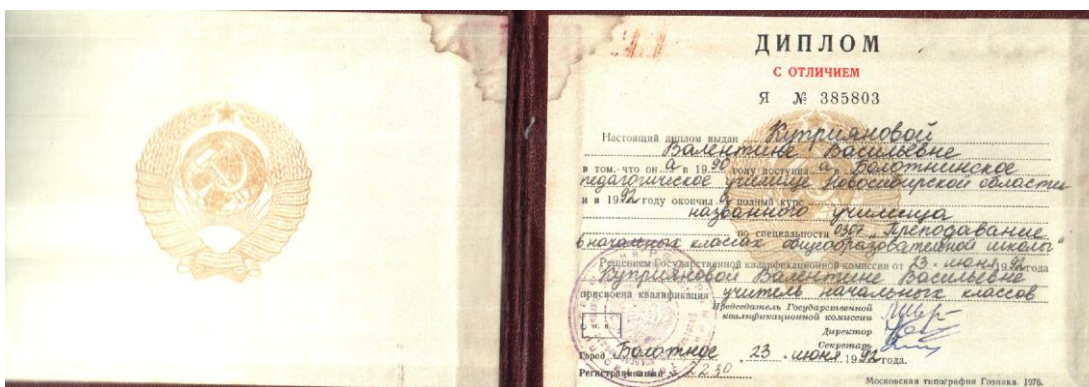 ДИПЛОМ
С ОТЛИЧИЕМ
Я № 385803
Настоящий диплом выдан Куприяновой
Валентине Васильевне
в том, что он а в 1990 году поступил а в Болотнинское
педагогическое училище Новосибирской области
и в 1992 году окончил а полный курс
названного училища
по специальности 0301 „Преподавание
в начальных классах общеобразовательной школы"
Решением Государственной квалификационной комиссии от 23 июня 1992 года
Куприяновой Валентине Васильевне
присвоена квалификация учитель начальных классов
Председатель Государственной
квалификационной комиссии
Директор
Секретарь
Город Болотное 23 июня 1992 года.
Регистрационный № 2230
Московская типография Гознака. 1976.